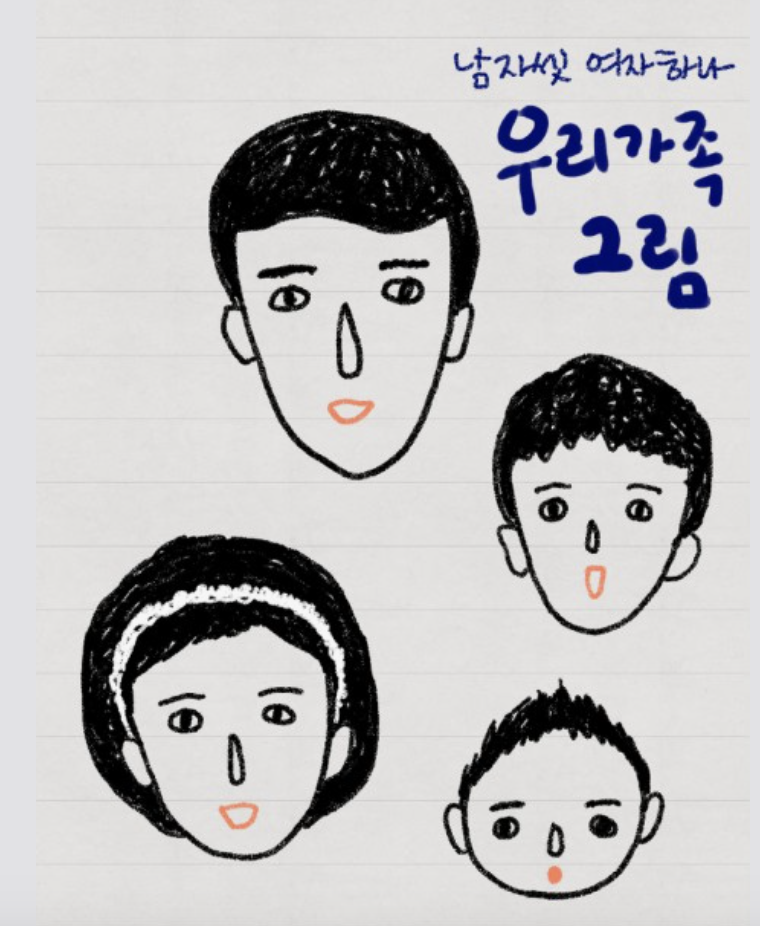 남자셋 여자하나
우리가족
그림